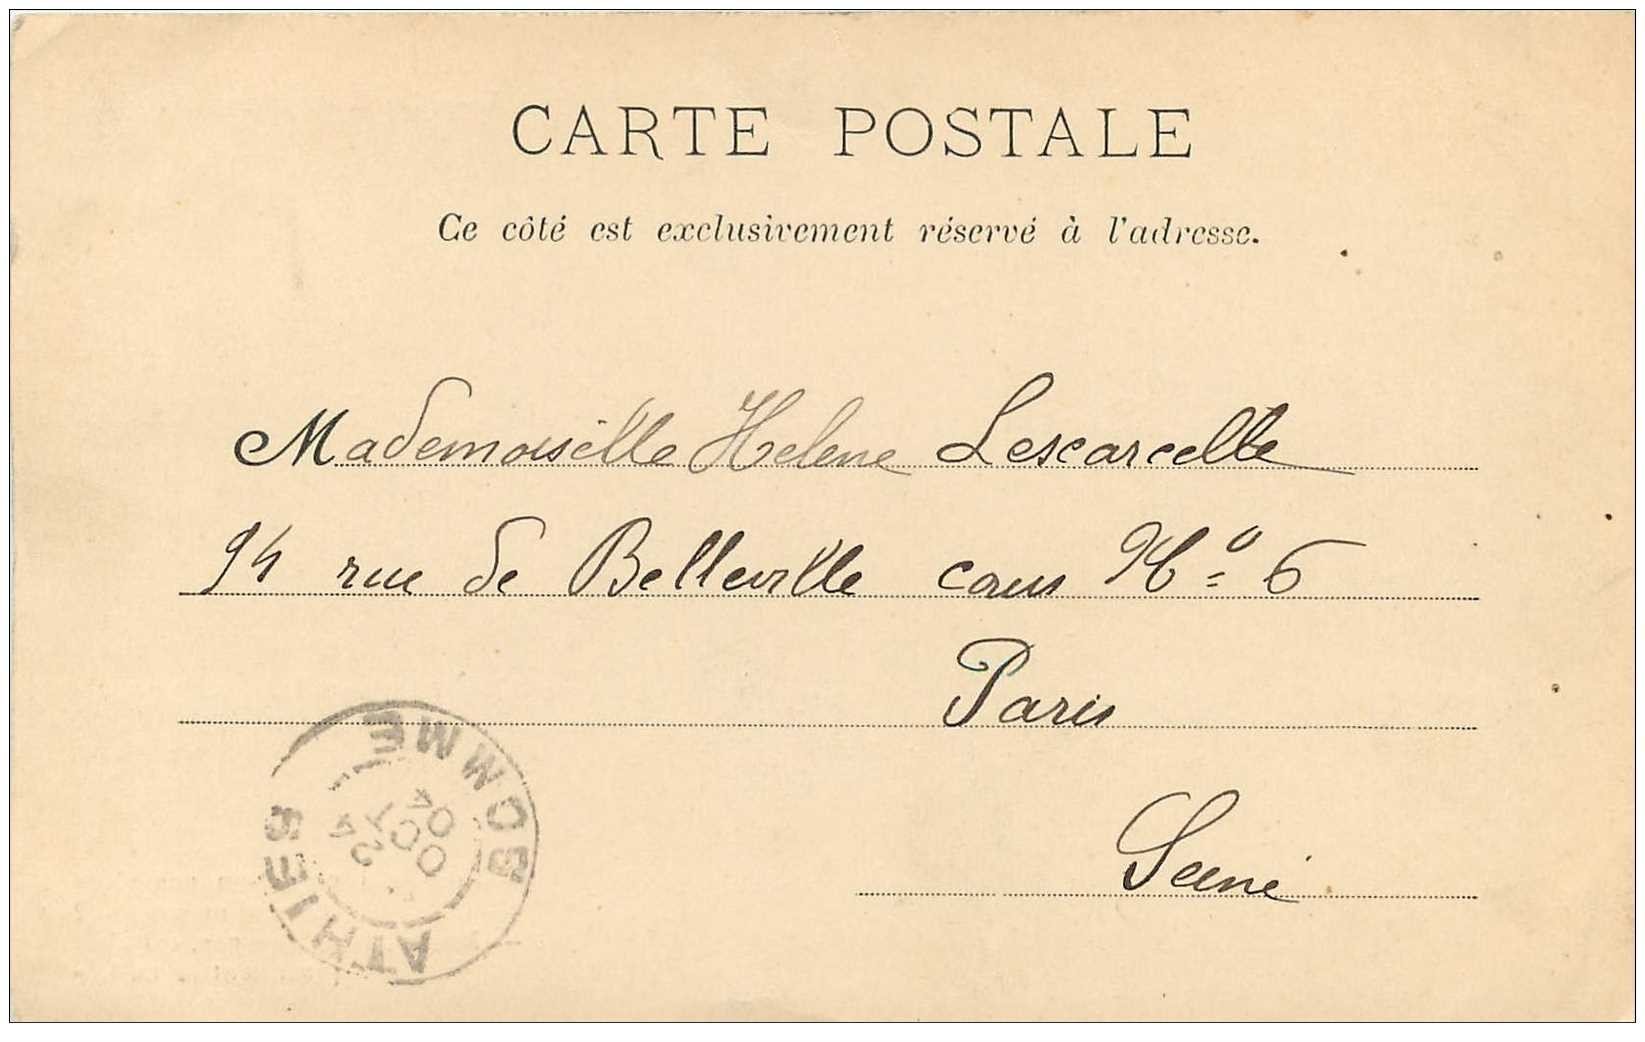 CARTE POSTALE
Ce côté est exclusivement réservé à l'adresse.
Mademoiselle Helene Lescarcelle
94 rue de Belleville cour Nº 6
Paris
Seine
ATHIES
SOMME
24
OCT
04